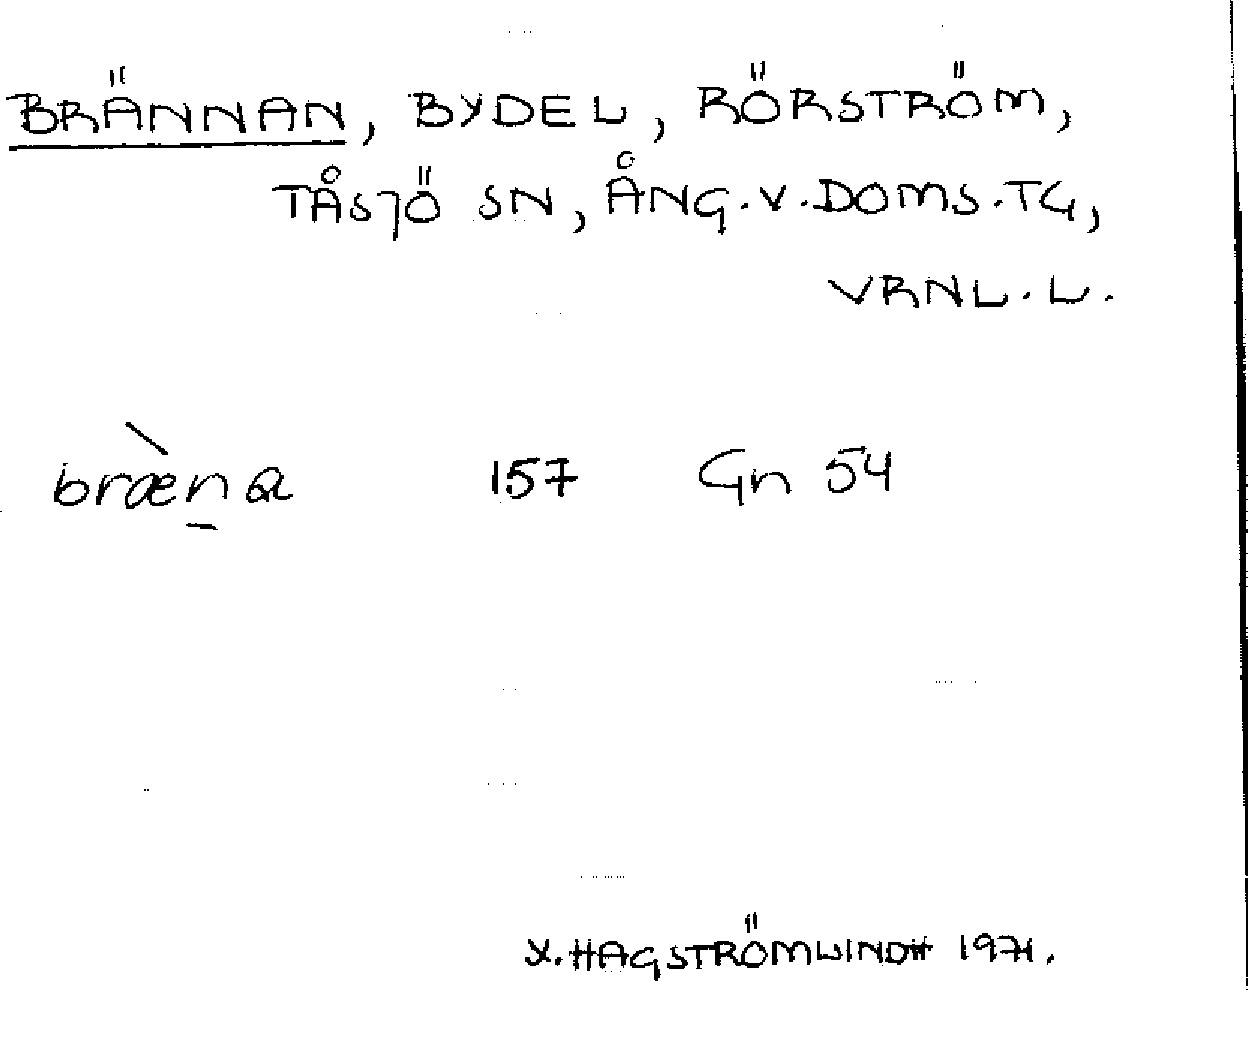 BRÄNNAN, BYDEL, RÖRSTRÖM,
TÅSJÖ SN, ÅNG. V. DOMS. TG,
VRNL. L.
bræ̀n̲a 157 Gn 54
Y. HAGSTRÖMLINDH 1971.